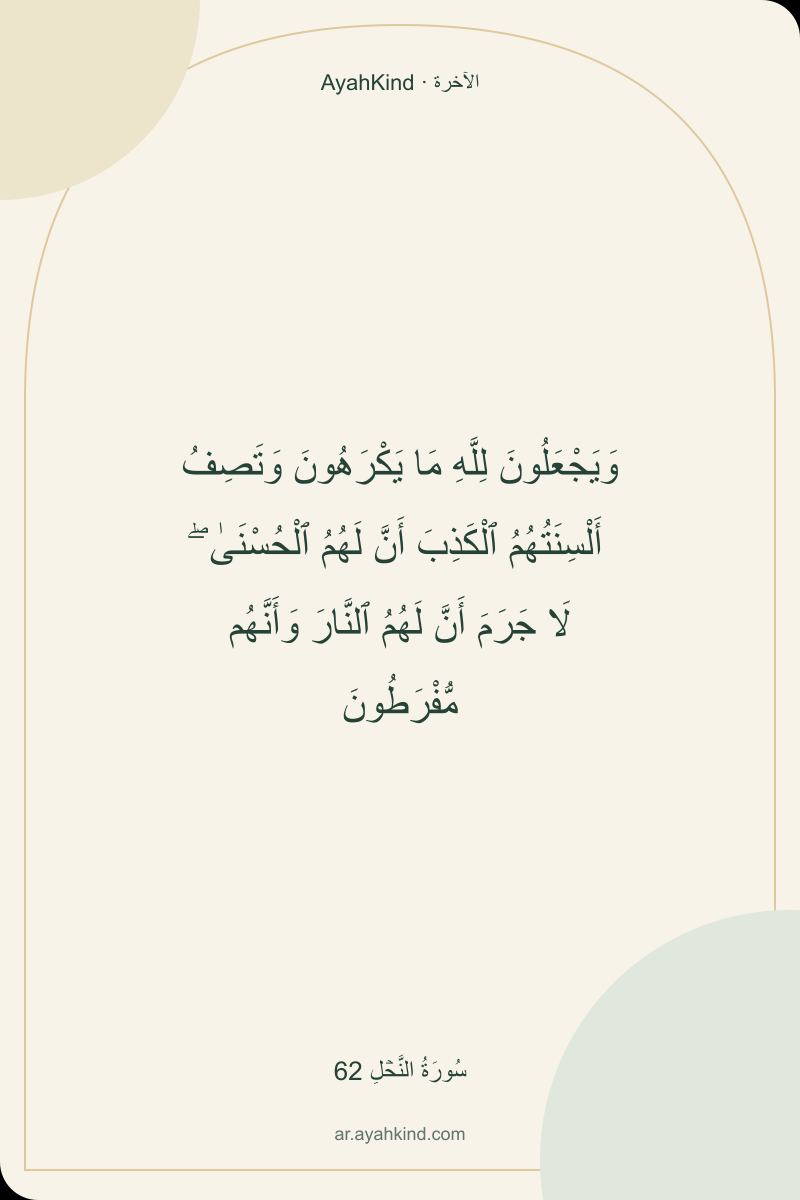 AyahKind · الآخرة
وَيَجْعَلُونَ لِلَّهِ مَا يَكْرَهُونَ وَتَصِفُ
أَلْسِنَتُهُمُ ٱلْكَذِبَ أَنَّ لَهُمُ ٱلْحُسْنَىٰ ۖ
لَا جَرَمَ أَنَّ لَهُمُ ٱلنَّارَ وَأَنَّهُم
مُّفْرَطُونَ
سُورَةُ النَّحۡلِ 62
ar.ayahkind.com